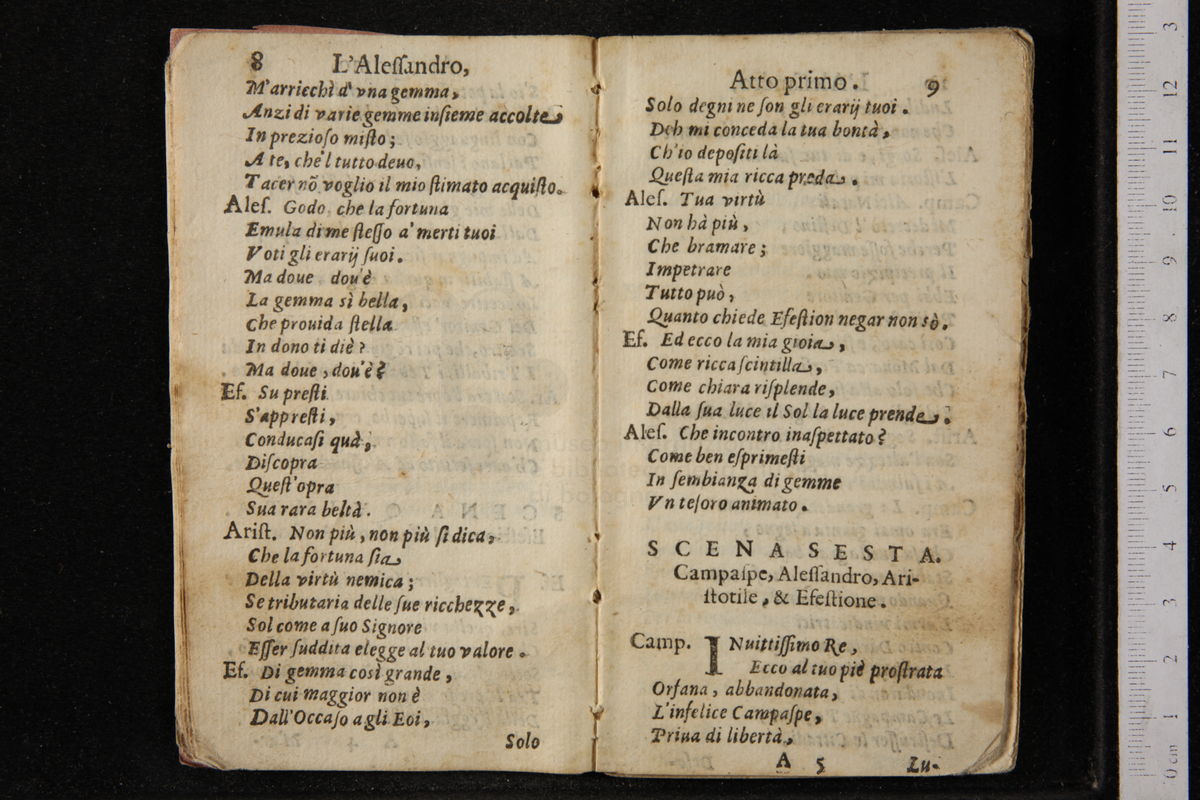 8 L'Aleſſandro,
M'arriechì d' vna gemma,
Anzi di varie gemme inſieme accolte
In prezioſo miſto;
A te, che'l tutto deuo,
Tacer nõ voglio il mio ſtimato acquiſto.
Aleſ. Godo, che la fortuna
Emula di me ſteſſo a' merti tuoi
Voti gli erarij ſuoi.
Ma doue, dou'è
La gemma sì bella,
Che prouida ſtella
In dono ti diè?
Ma doue, dou'è?
Ef. Su preſti
S'appreſti,
Conducaſi quà,
Diſcopra
Queſt'opra
Sua rara beltà.
Ariſt. Non più, non più ſi dica,
Che la fortuna ſia
Della virtù nemica;
Se tributaria delle ſue ricchezze,
Sol come a ſuo Signore
Eſſer ſuddita elegge al tuo valore.
Ef. Di gemma così grande,
Di cui maggior non è
Dall'Occaſo agli Eoi,
Solo
Atto primo. 9
Solo degni ne ſon gli erarij tuoi.
Deh mi conceda la tua bontà,
Ch'io depoſiti là
Queſta mia ricca preda.
Aleſ. Tua virtù
Non hà più,
Che bramare;
Impetrare
Tutto può,
Quanto chiede Efeſtion negar non sò.
Ef. Ed ecco la mia gioia,
Come ricca ſcintilla,
Come chiara riſplende,
Dalla ſua luce il Sol la luce prende.
Aleſ. Che incontro inaſpettato?
Come ben eſprimeſti
In ſembianza di gemme
Vn teſoro animato.
SCENA SESTA.
Campaſpe, Aleſſandro, Ari-
ſtotile, & Efeſtione.
Camp. INuittiſſimo Re,
Ecco al tuo piè proſtrata
Orfana, abbandonata,
L'infelice Campaſpe,
Priua di libertà,
A 5 Lu-